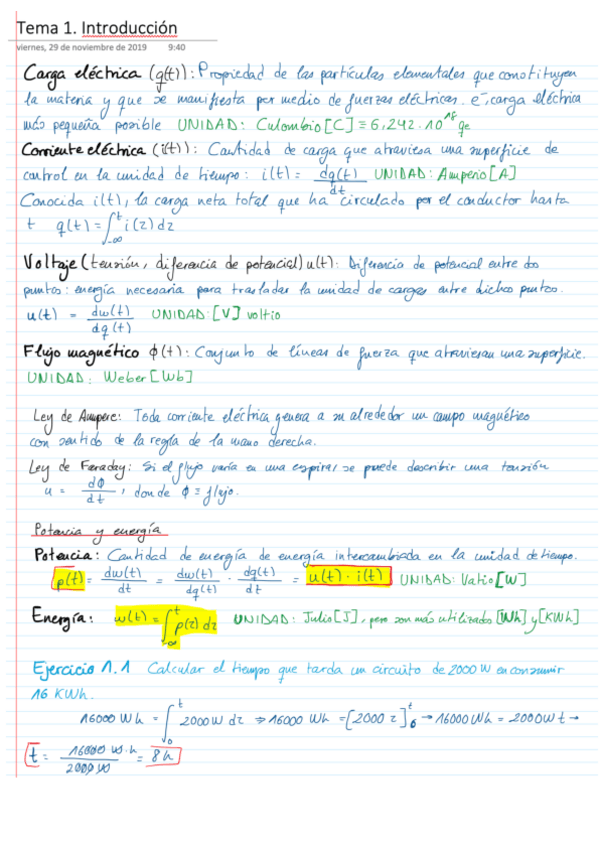 Tema 1. Introducción
viernes, 29 de noviembre de 2019 9:40
Carga eléctrica (q(t)): Propiedad de las partículas elementales que constituyen
la materia y que se manifiesta por medio de fuerzas eléctricas. e⁻, carga eléctrica
más pequeña posible UNIDAD: Culombio [C] ≡ 6,242·10¹⁸ qe
Corriente eléctrica (i(t)): Cantidad de carga que atraviesa una superficie de
control en la unidad de tiempo: i(t) = dq(t)/dt UNIDAD: Amperio [A]
Conocida i(t), la carga neta total que ha circulado por el conductor hasta
t q(t) = ∫_{-∞}^{t} i(z) dz
Voltaje (tensión, diferencia de potencial) u(t): Diferencia de potencial entre dos
puntos: energía necesaria para trasladar la unidad de cargas entre dichos puntos.
u(t) = dw(t)/dq(t) UNIDAD: [V] voltio
Flujo magnético ϕ(t): Conjunto de líneas de fuerza que atraviesan una superficie.
UNIDAD: Weber [Wb]
Ley de Ampere: Toda corriente eléctrica genera a su alrededor un campo magnético
con sentido de la regla de la mano derecha.
Ley de Faraday: Si el flujo varía en una espira, se puede describir una tensión
u = dϕ/dt, donde ϕ ≡ flujo.
Potencia y energía
Potencia: Cantidad de energía de energía intercambiada en la unidad de tiempo.
p(t) = dw(t)/dt = dw(t)/dq(t) · dq(t)/dt = u(t) · i(t) UNIDAD: Vatio [W]
Energía: w(t) = ∫_{-∞}^{t} p(z) dz UNIDAD: Julio [J], pero son más utilizados [Wh] y [KWh]
Ejercicio 1.1 Calcular el tiempo que tarda un circuito de 2000 W en consumir
16 KWh.
16000 Wh = ∫_{0}^{t} 2000 W dz ⇒ 16000 Wh = [2000 z]_{0}^{t} → 16000 Wh = 2000W t →
t = 16000 W·h / 2000 W = 8 h